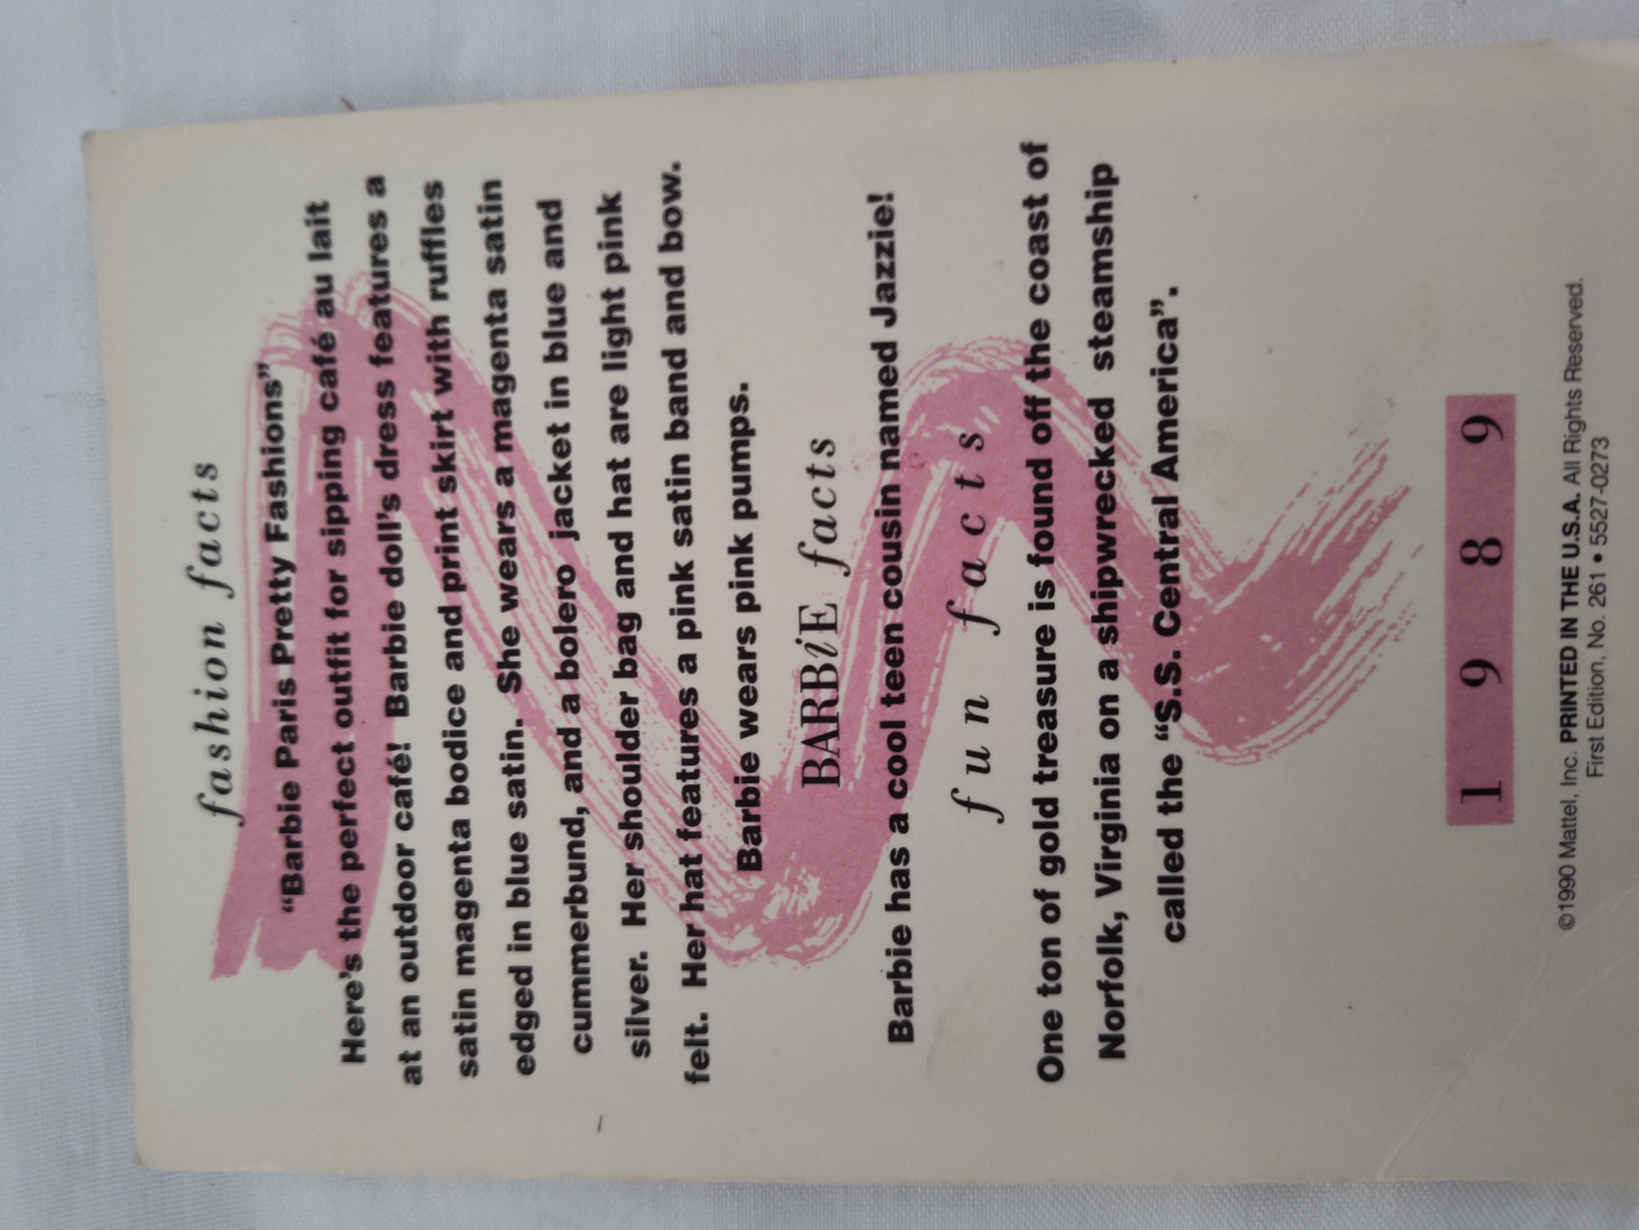 fashion facts
“Barbie Paris Pretty Fashions”
Here’s the perfect outfit for sipping café au lait
at an outdoor café! Barbie doll’s dress features a
satin magenta bodice and print skirt with ruffles
edged in blue satin. She wears a magenta satin
cummerbund, and a bolero jacket in blue and
silver. Her shoulder bag and hat are light pink
felt. Her hat features a pink satin band and bow.
Barbie wears pink pumps.
BARBiE facts
Barbie has a cool teen cousin named Jazzie!
fun facts
One ton of gold treasure is found off the coast of
Norfolk, Virginia on a shipwrecked steamship
called the “S.S. Central America”.
1989
©1990 Mattel, Inc. PRINTED IN THE U.S.A. All Rights Reserved.
First Edition, No. 261 • 5527-0273